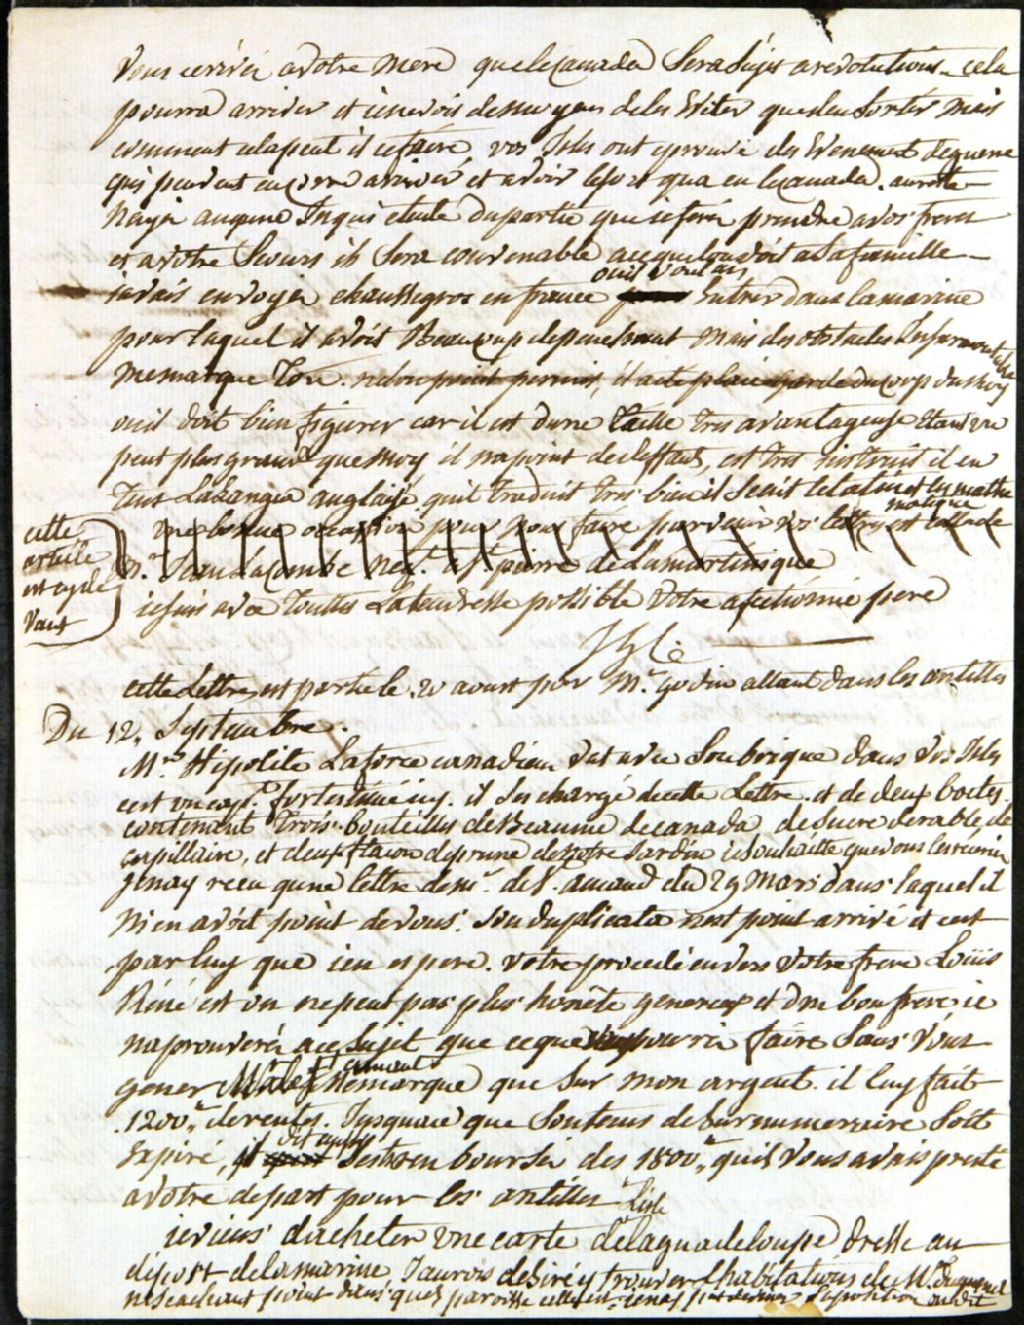 vous ecrivéz a votre mere que le Canada Sera Sujet a revolutions. cela
pourra arriver et je ne vois de moyens de les Eviter que d'en Sortir mais
comment cela peut il ce faire vos Isles ont eprouvé des Evenement de guerre
qui peuvent encore arriver et avoir lesort qua eu le Canada. au reste
Nayéz aucune Inquietude du partie que je ferai prendre a vos freres
et a votre Soeurs ils Sera convenable a ce que lon doit a la famille
javais envoyer chaussegros en france ou il voulais Entrer dans la marine
pour laquel il avoit Beaucoup de penchant mais des obstacles Insurmontable
me marque Ton. il a eté placé garde du corps du Roy
ou il doit bien figurer car il est d'une taille tres avantageuse Etant un
peut plus grand que moy il na point de deffauts, est tres instruit il en
Tant La Langue anglaise quil traduit tres bien il Scait le latin et les mathe
matique
cette article est cy de Vant
une bonne occasion pour nous faire parvenir vos lettres est celle de
M. Jean Lacombe Neg.t a St pierre de La martinique
je suis avec Touttes La tendresse possible votre afectionné pere
cette Lettre est partie le 20 aoust par Mr. godin allant dans les antilles
Du 12, Septembre.
Mr. Hipolite Laforce canadien vat avec Son brique dans vos Isles
cest un cap.e fort estimé icy. il Ses chargé de cette Lettre et de deux boetes
contenant Trois bouteilles de Beaume de canada, de Sucre derable, de
capillaire, et deux flacon de prune de notre Jardin je Souhaitte que vous les recevié
je nay recu qune lettre de mr. de St. amand du 29 Mars dans laquel il
Ni en avoit point de vous. Son duplicata nest point arrivé et cest
par luy que jen espere. votre procedé envers votre frere Loüis
Réné est on ne peut pas plus honète genereux et d'un bon frere je
naprouverai a ce Sujet que ce que pourai faire Sans vous
gener Remarque que Sur mon argent. il luy fait
1200.tt de rentes. Jusquace que Son tems de Surnumeraire Soit
Expiré, et Sest remboursér des 1800.tt quil vous avais preté
a votre depart pour les antilles
je viens dacheter une carte de la guadeloupe dressé au
dépost de la marine J'aurois desiré y trouver l'habitations de Mr.
ne Scachant point dans quel paroisse elle est je nay put